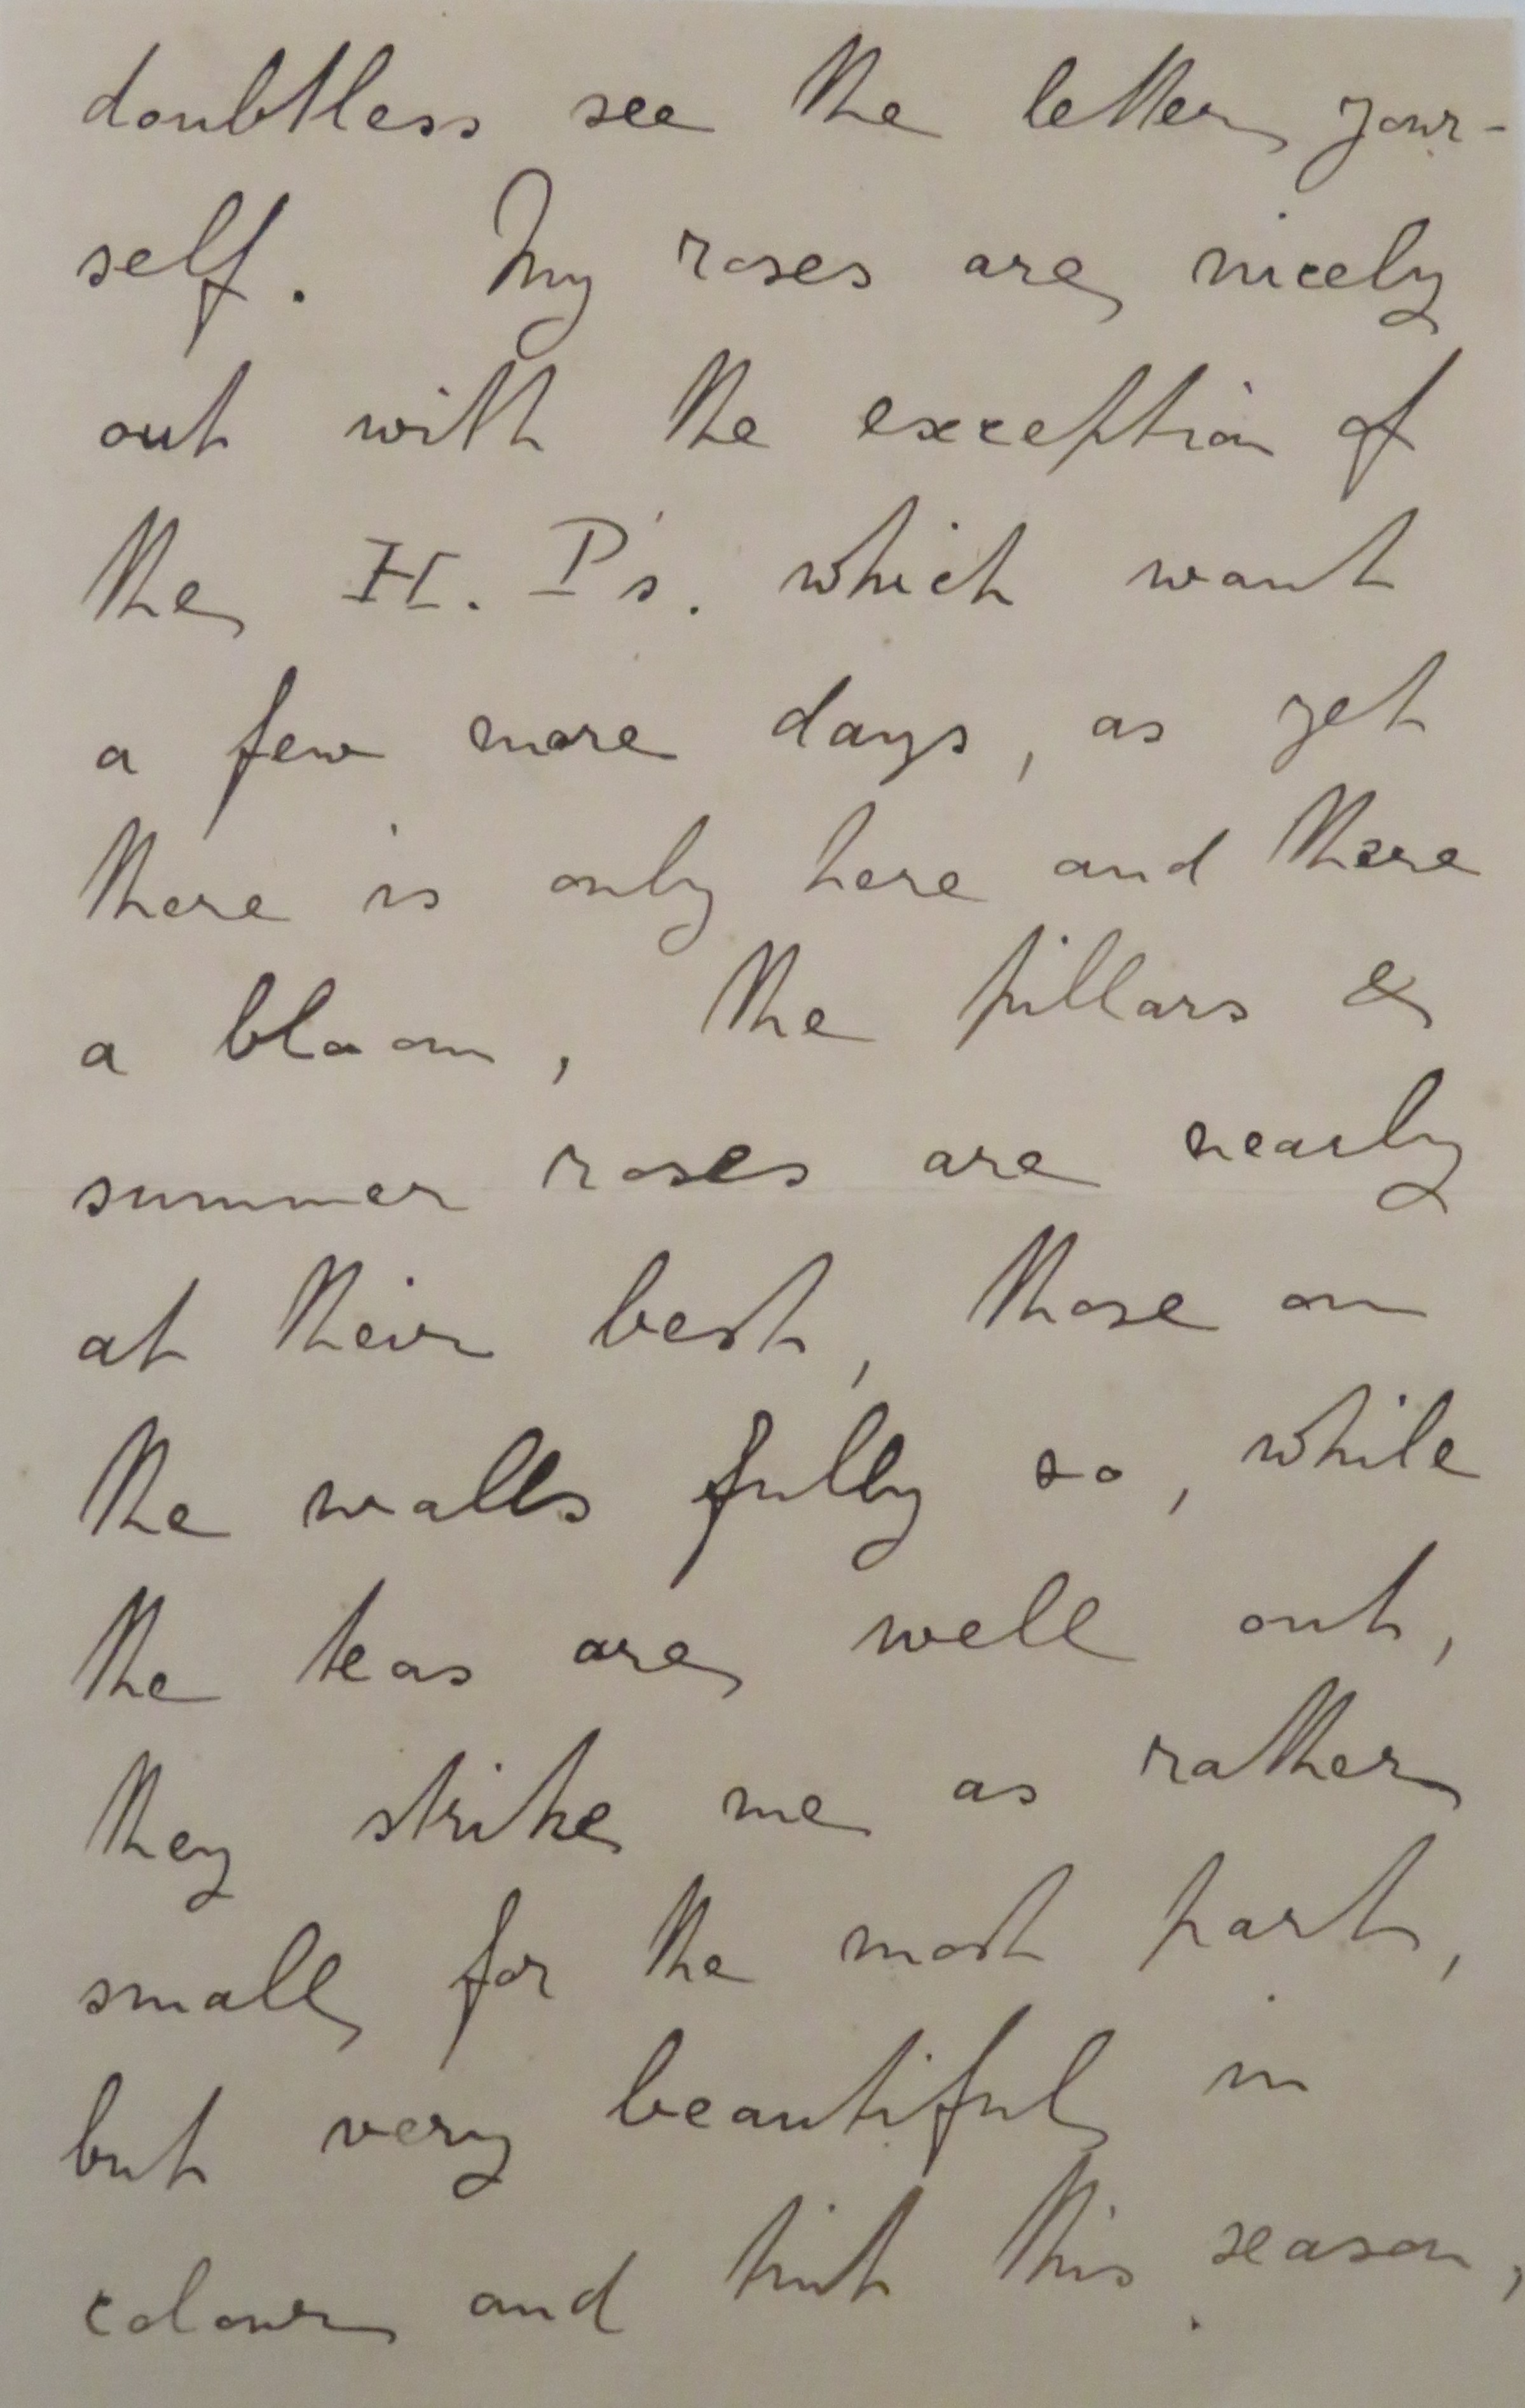 doubtless see the letter your-
self. My roses are nicely
out with the exception of
the H. P's. which want
a few more days, as yet
there is only here and there
a bloom, the pillars &
summer roses are nearly
at their best, those on
the walls fully so, while
the teas are well out,
they strike me as rather
small for the most part,
but very beautiful in
colour and tint this season,